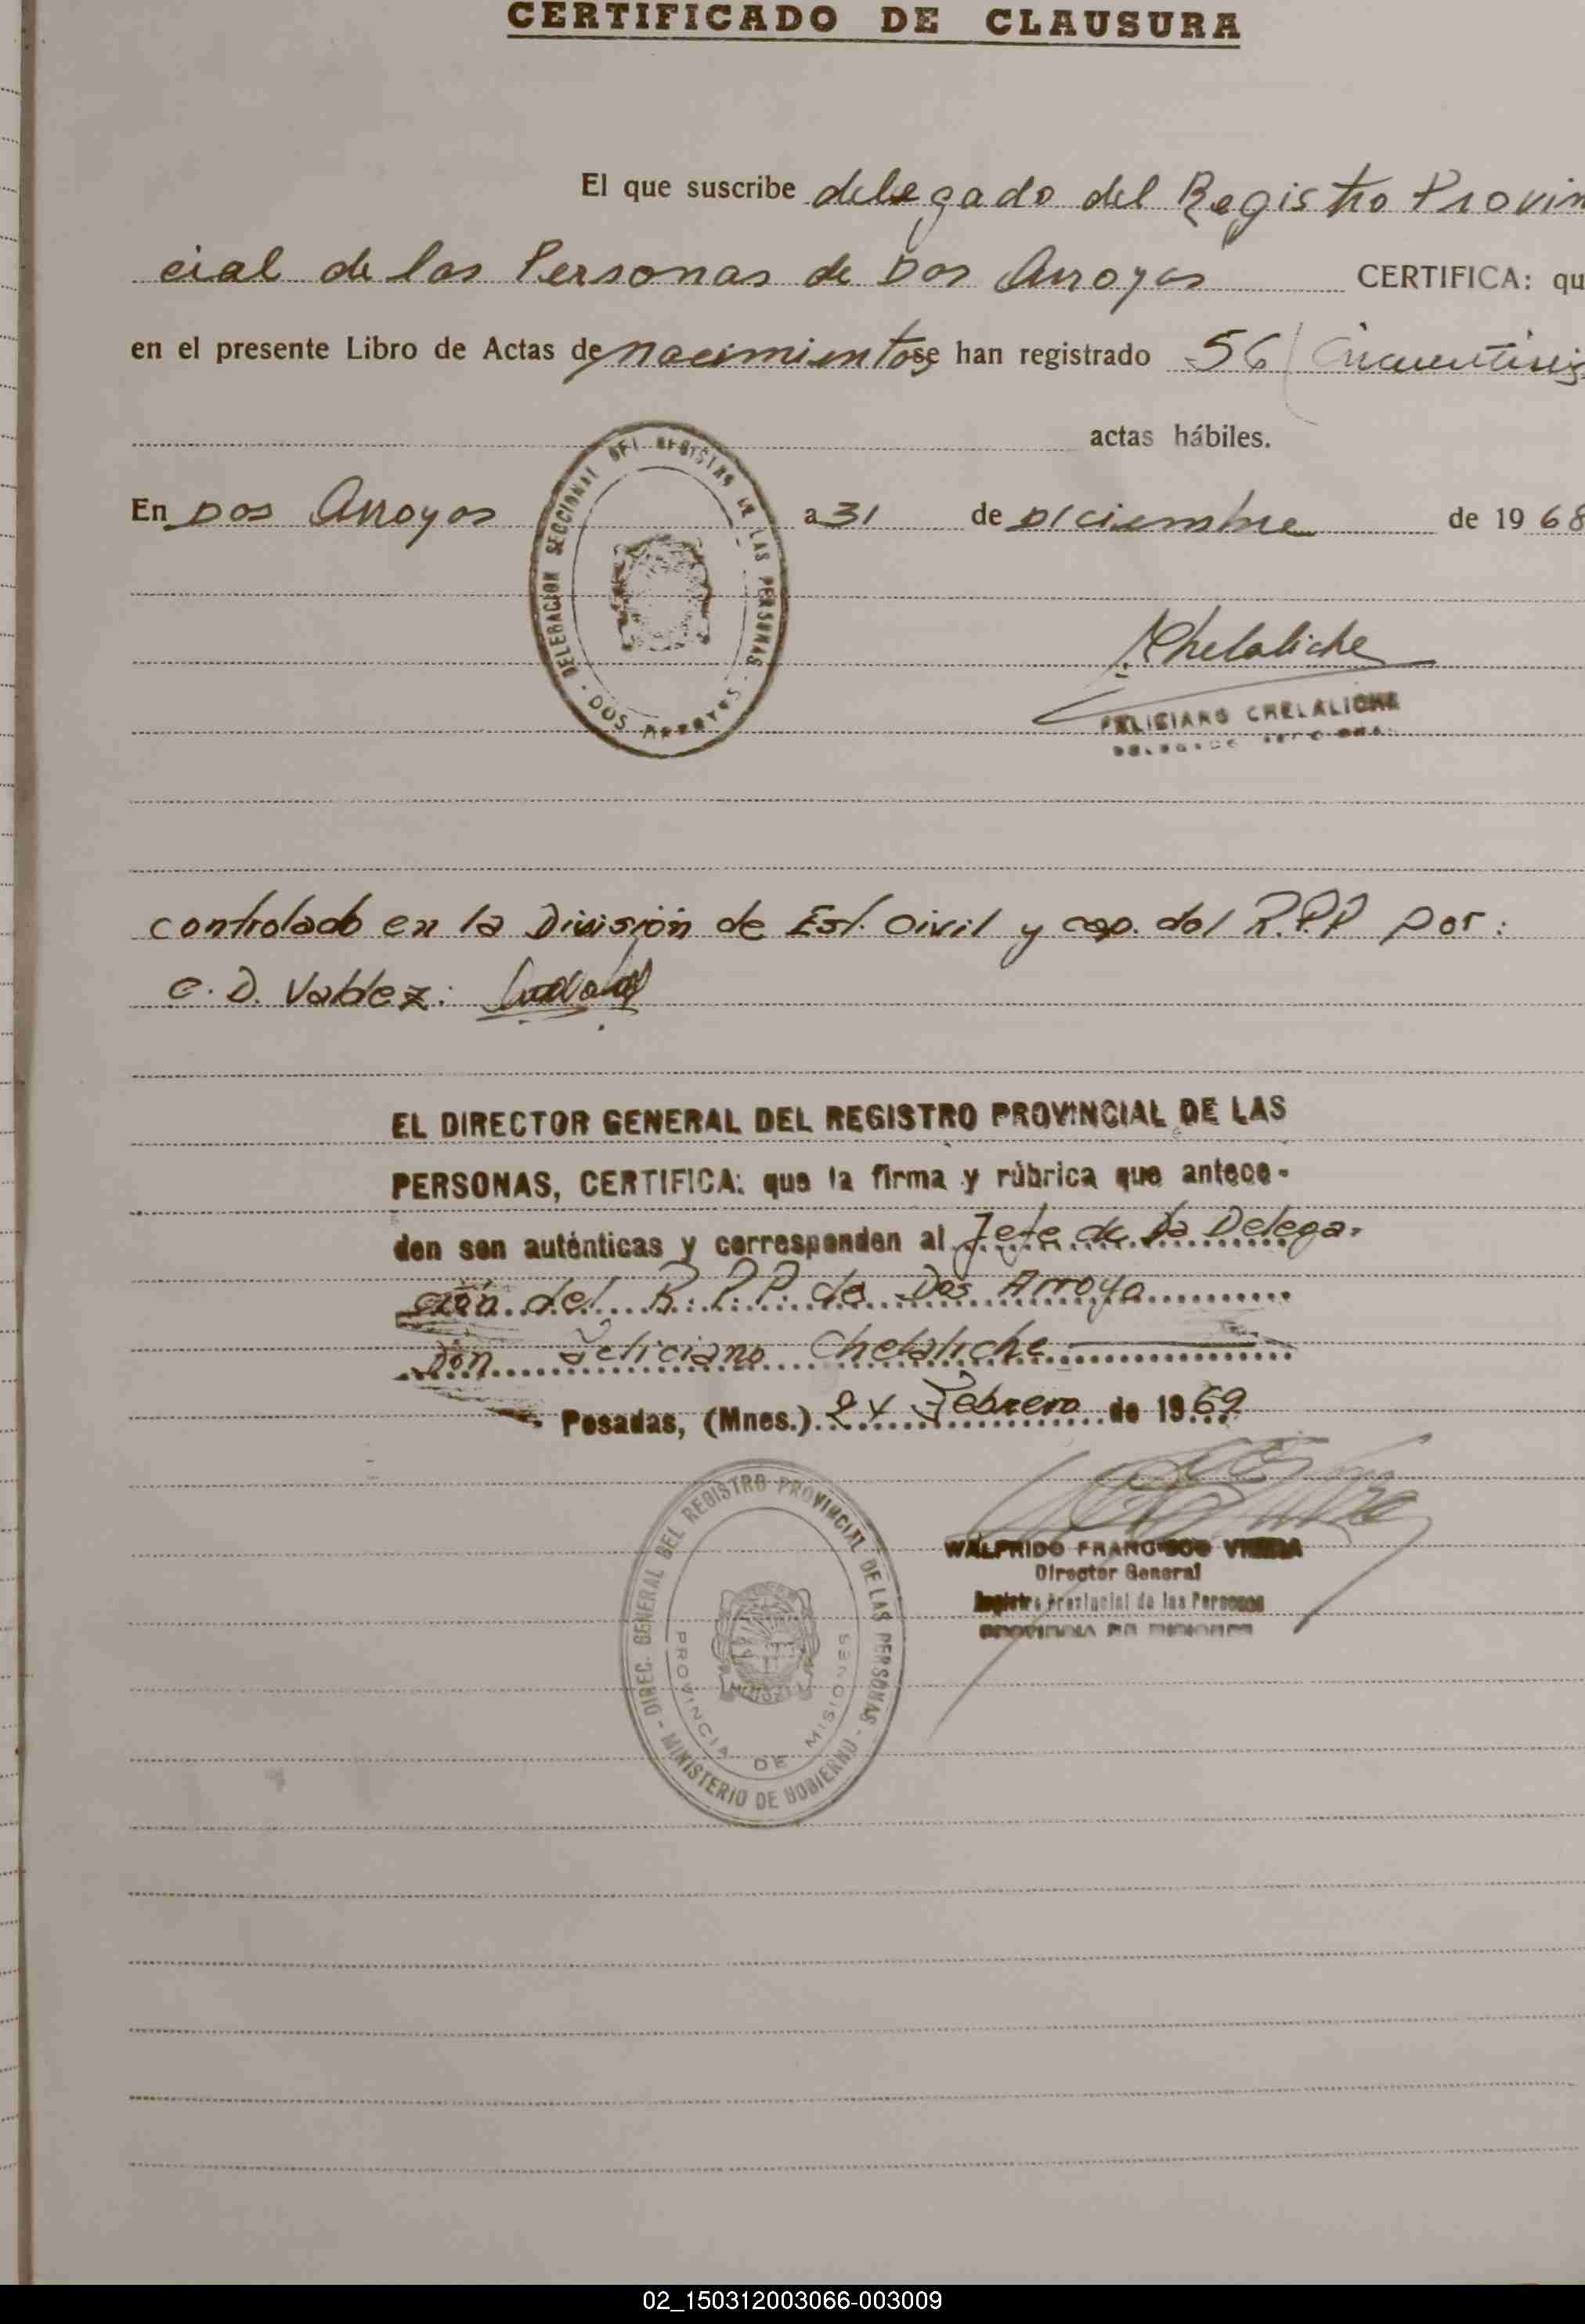 CERTIFICADO DE CLAUSURA
El que suscribe delegado del Registro Provin
cial de las Personas de Dos Arroyos CERTIFICA: qu
en el presente Libro de Actas de nacimientos se han registrado 56 ( Cincuentiseis
actas hábiles.
En Dos Arroyos a 31 de Diciembre de 19 68
DELEGACION SECCIONAL DEL REGISTRO DE LAS PERSONAS - DOS ARROYOS -
Chelaliche
FELICIANO CHELALICHE
controlado en la División de Est. Civil y cap. del R.P.P por:
C. D. Valdez:
EL DIRECTOR GENERAL DEL REGISTRO PROVINCIAL DE LAS
PERSONAS, CERTIFICA: que la firma y rúbrica que antece-
den son auténticas y corresponden al Jefe de la Delega-
ción del R.P.P. de Dos Arroyo
Don Feliciano Chelaliche
Posadas, (Mnes.) 24 Febrero de 1969
DIREC. GENERAL DEL REGISTRO PROVINCIAL DE LAS PERSONAS - MINISTERIO DE GOBIERNO -
PROVINCIA DE MISIONES
WALFRIDO FRANCISCO
Director General
Registro Provincial de las Personas
PROVINCIA DE MISIONES
02_150312003066-003009